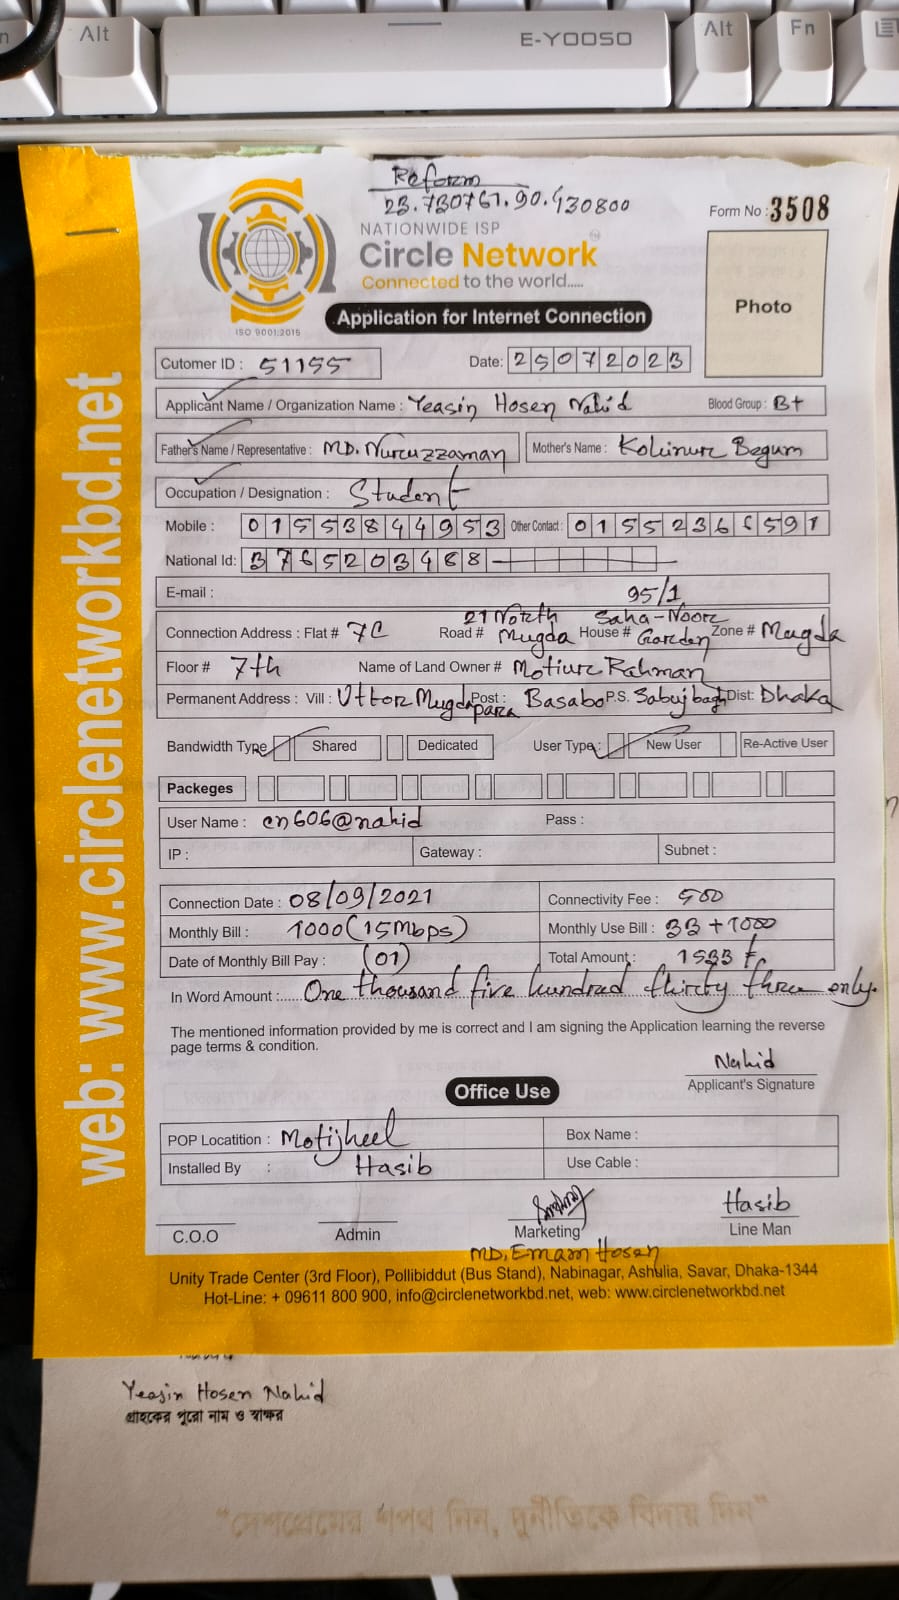 Alt
E-YOOSO
Alt
Fn
Reform
23.730761.90.430800
Form No : 3508
NATIONWIDE ISP
Circle Network
Connected to the world.....
ISO 9001:2015
Photo
Application for Internet Connection
Cutomer ID : 51155
Date: 25072023
Applicant Name / Organization Name : Yeasin Hosen Nahid
Blood Group : B+
Father's Name / Representative : MD. Nuruzzaman
Mother's Name : Kohinur Begum
Occupation / Designation : Student
Mobile : 01553844953
Other Contact : 01552366591
National Id: 3765203488
E-mail :
95/1
21 North Saha-Noor
Connection Address : Flat # 7C Road # Mugda House # Garden Zone # Mugda
Floor # 7th Name of Land Owner # Motiur Rahman
Permanent Address : Vill : Uttor Mugdapara Post : Basabo P.S. Sabujbagh Dist: Dhaka
Bandwidth Type Shared Dedicated User Type : New User Re-Active User
Packeges
User Name : cn606@nahid Pass :
IP : Gateway : Subnet :
Connection Date : 08/09/2021 Connectivity Fee : 500
Monthly Bill : 1000 (15Mbps) Monthly Use Bill : 33 + 1000
Date of Monthly Bill Pay : (01) Total Amount : 1533
In Word Amount :..... One thousand five hundred thirty three only.
The mentioned information provided by me is correct and I am signing the Application learning the reverse
page terms & condition.
Nahid
Applicant's Signature
Office Use
POP Locatition : Motijheel Box Name :
Installed By : Hasib Use Cable :
Hasib
C.O.O Admin Marketing Line Man
MD. Emam Hosen
Unity Trade Center (3rd Floor), Pollibiddut (Bus Stand), Nabinagar, Ashulia, Savar, Dhaka-1344
Hot-Line: + 09611 800 900, info@circlenetworkbd.net, web: www.circlenetworkbd.net
web: www.circlenetworkbd.net
Yeasin Hosen Nahid
গ্রাহকের পুরো নাম ও স্বাক্ষর
"দেশপ্রেমের শপথ নিন, দুর্নীতিকে বিদায় দিন"